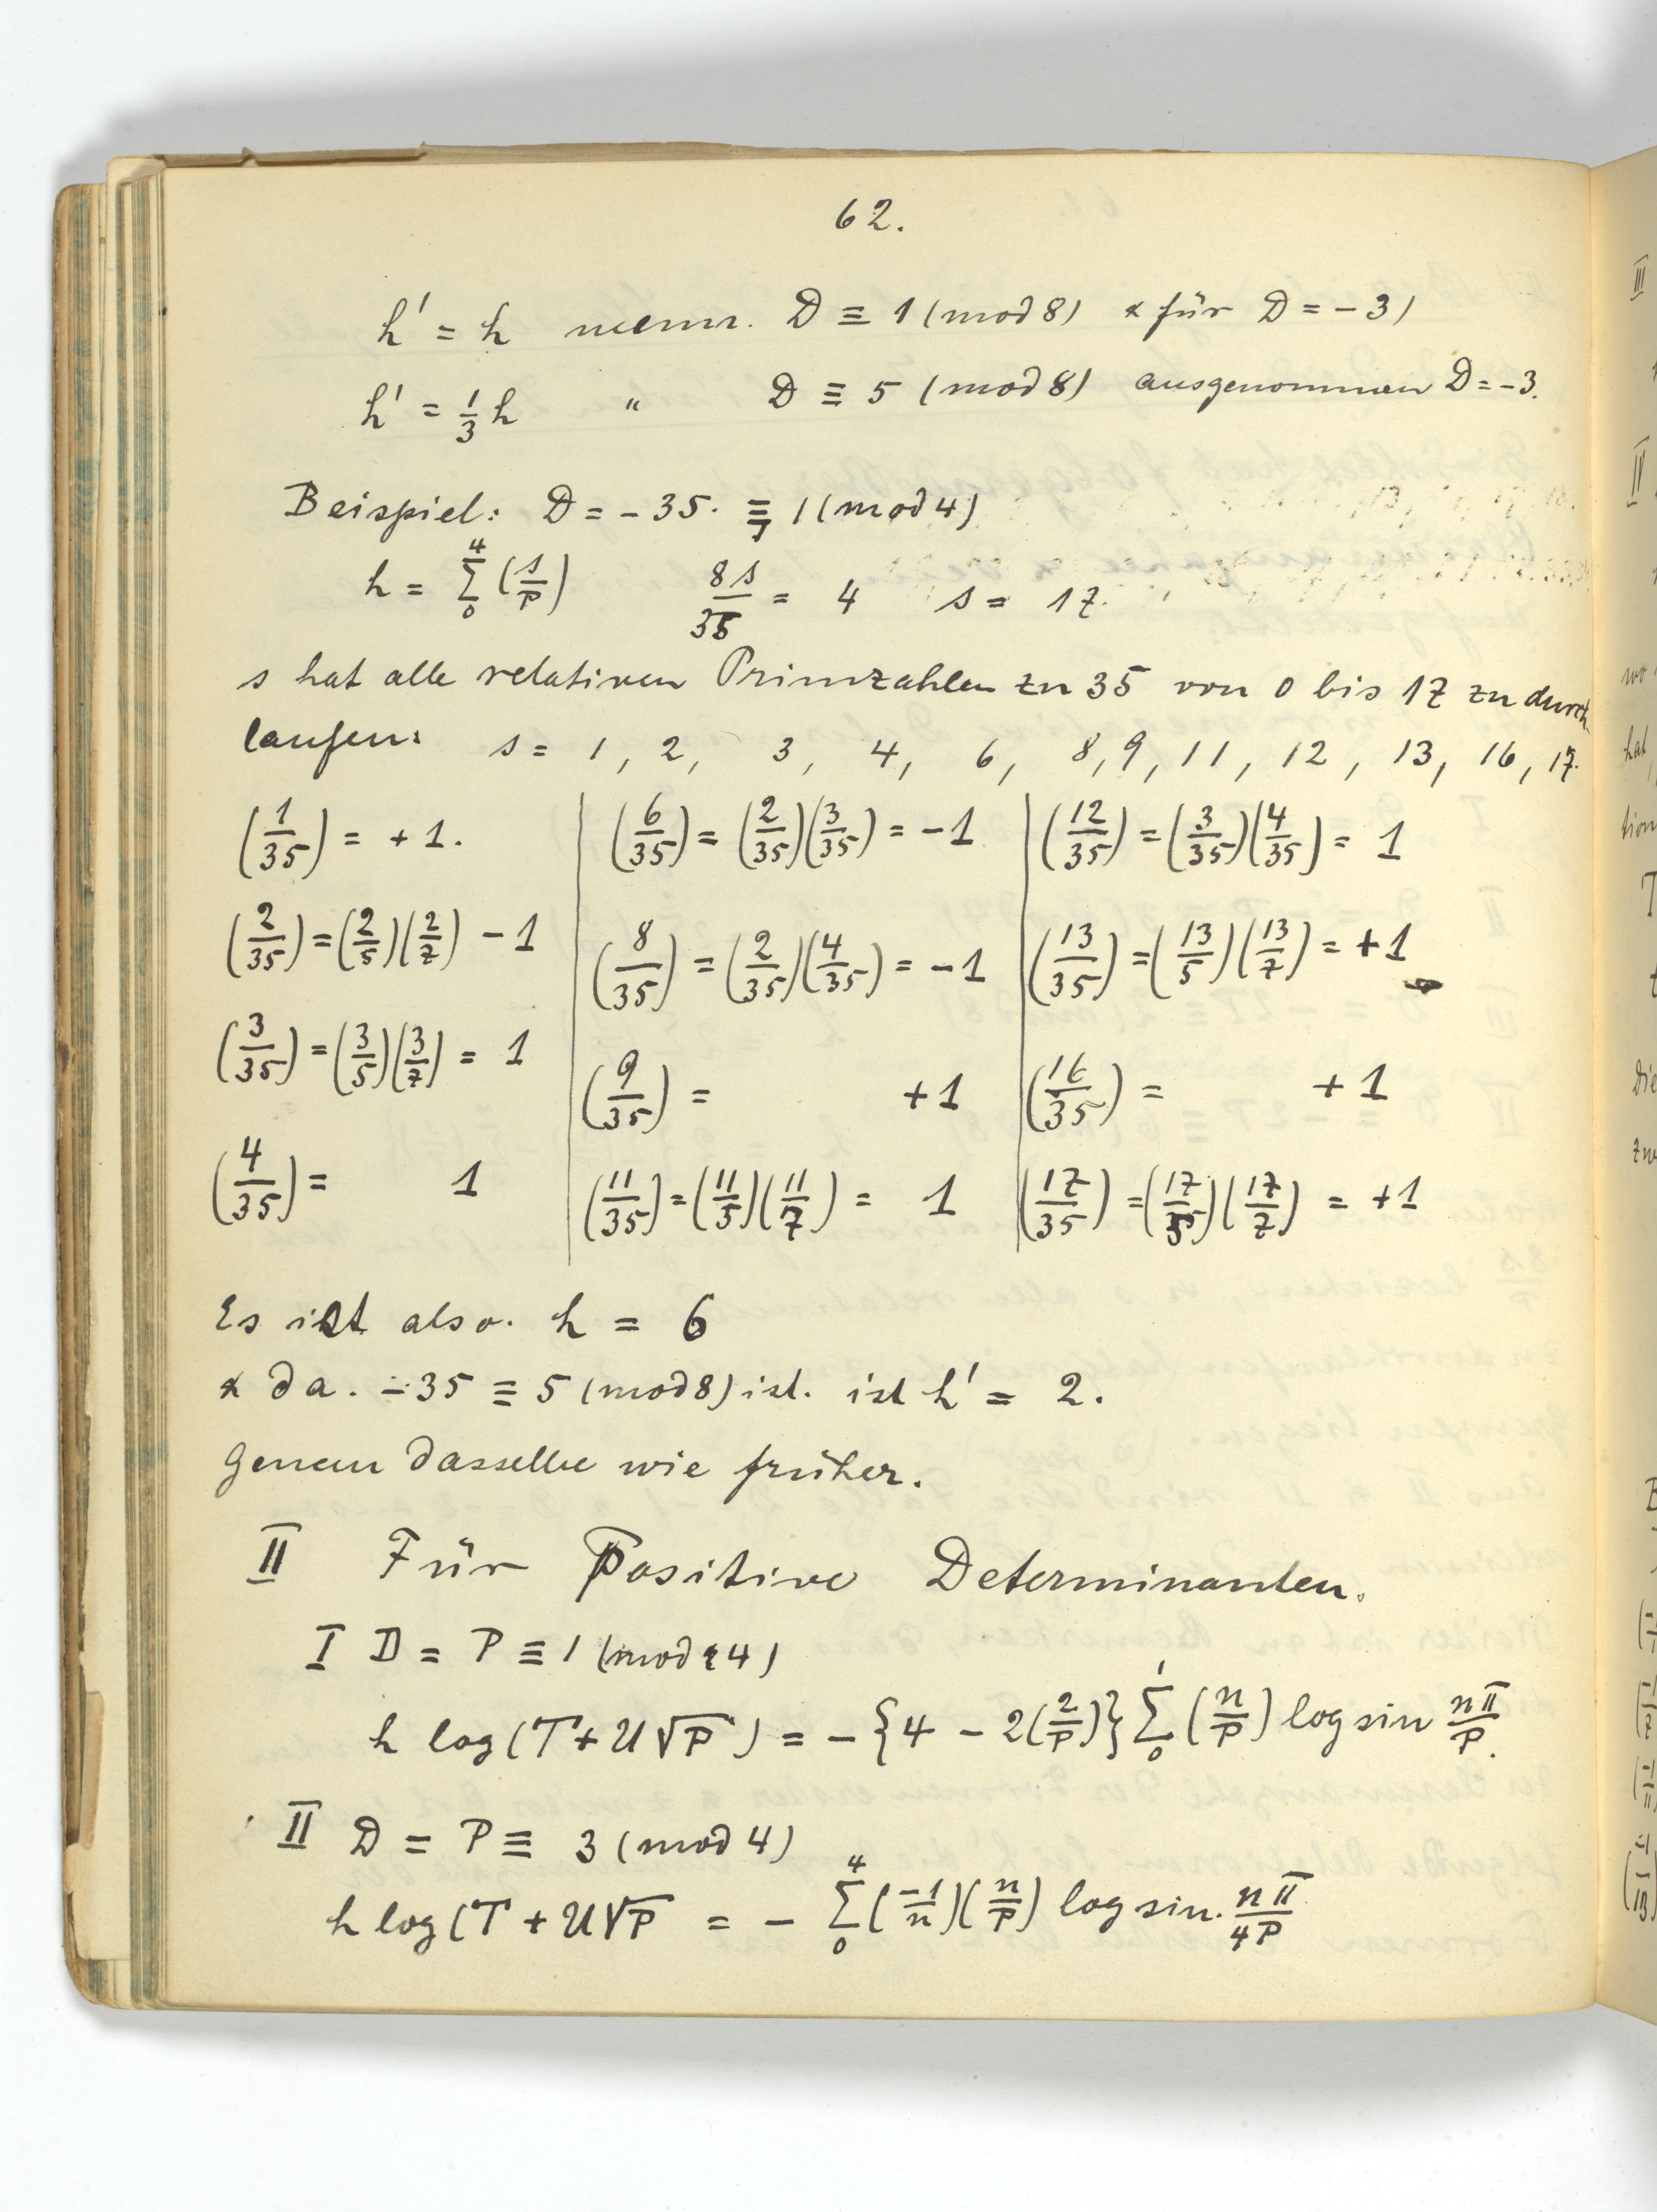 62.
h' = h wenn. D ≡ 1 (mod 8) & für D = -3)
h' = 1/3 h " D ≡ 5 (mod 8) ausgenommen D = -3.
Beispiel: D = -35. ≡ 1 (mod 4)
h = Σ_0^4 (s/P) 8s/35 = 4 s = 17.
s hat alle relativen Primzahlen zu 35 von 0 bis 17 zu durch
laufen: s = 1, 2, 3, 4, 6, 8, 9, 11, 12, 13, 16, 17.
(1/35) = +1. (6/35) = (2/35)(3/35) = -1 (12/35) = (3/35)(4/35) = 1
(2/35) = (2/5)(2/7) - 1 (8/35) = (2/35)(4/35) = -1 (13/35) = (13/5)(13/7) = +1
(3/35) = (3/5)(3/7) = 1 (9/35) = +1 (16/35) = +1
(4/35) = 1 (11/35) = (11/5)(11/7) = 1 (17/35) = (17/5)(17/7) = +1
Es ist also. h = 6
& da. -35 ≡ 5 (mod 8) ist. ist h' = 2.
Genau dasselbe wie früher.
II Für Positive Determinanten.
I D = P ≡ 1 (mod 4)
h log(T + U√P) = -{4 - 2(2/P)} Σ_0^1 (n/P) log sin nπ/P.
II D = P ≡ 3 (mod 4)
h log(T + U√P = - Σ_0^4 (-1/n)(n/P) log sin. nπ/4P